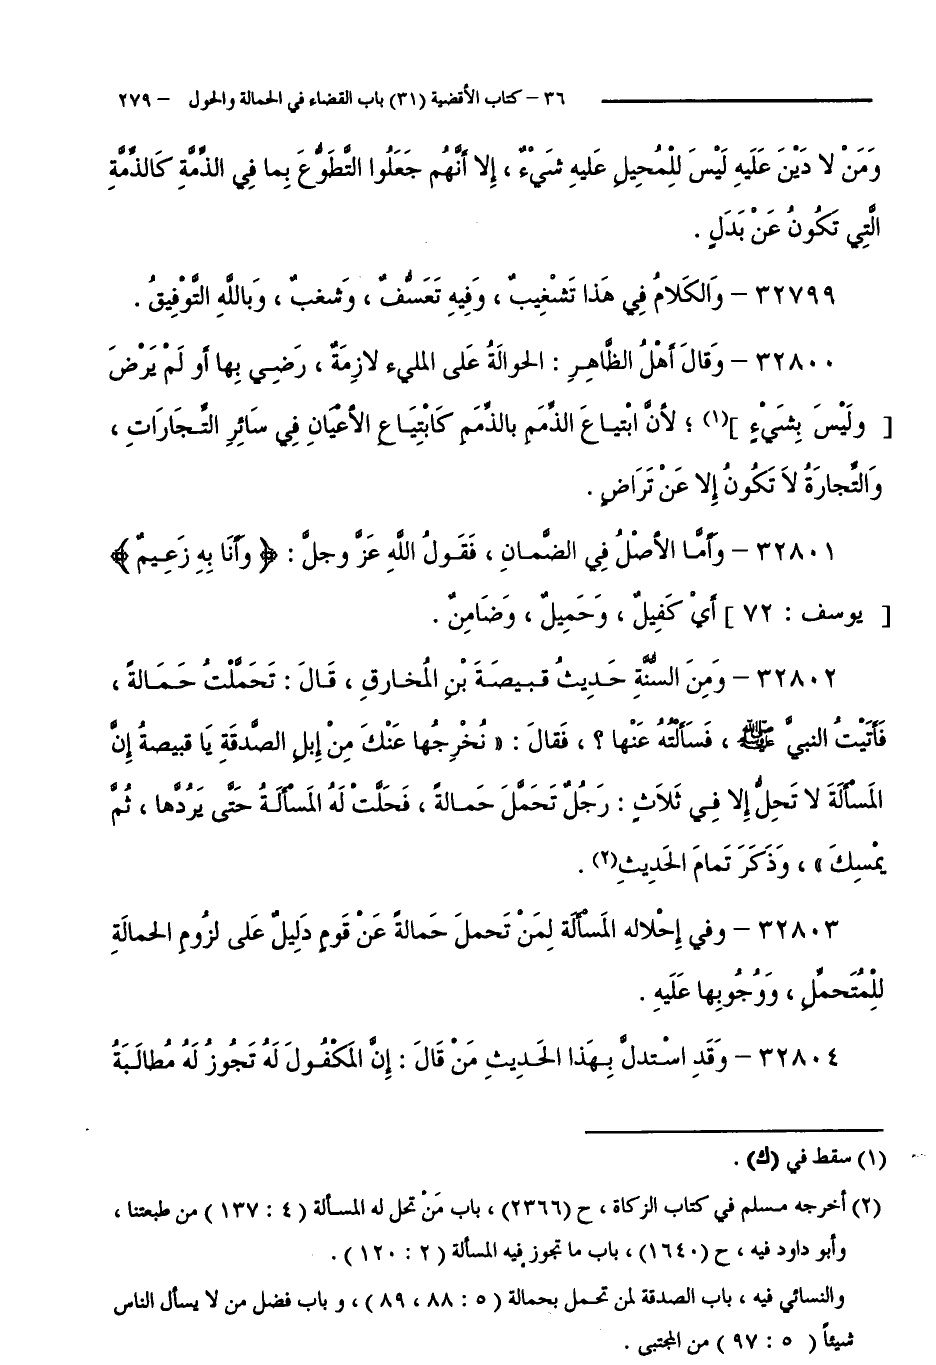 ٣٦ – كتاب الأقضية (٣١) باب القضاء في الحمالة والحول – ٢٧٩
وَمَنْ لا دَيْنَ عَلَيهِ لَيْسَ لِلْمُحِيلِ عَليهِ شَيْءٌ ، إِلا أَنَّهُم جَعَلُوا التَّطَوُّعَ بِما فِي الذِّمَّةِ كَالذِّمَّةِ
الَّتِي تَكُونُ عَنْ بَدَلٍ .
٣٢٧٩٩ – وَالكَلامُ فِي هَذا تَشْغِيبٌ ، وَفِيهِ تَعَسُّفٌ ، وَشَغبٌ ، وَبِاللَّهِ التَّوْفِيقُ .
٣٢٨٠٠ – وَقالَ أَهْلُ الظَّاهِرِ : الحوالَةُ عَلى المليء لازِمَةٌ ، رَضِي بِها أو لَمْ يَرْضَ
[ ولَيْسَ بِشَيْءٍ ](١) ؛ لأنَّ ابْتِياعَ الذِّمَم بالذِّمَم كَابْتِيَاعِ الأعْيَانِ فِي سَائِرِ التِّجَارَاتِ ،
وَالتِّجارَةُ لاَ تَكُونُ إِلا عَنْ تَرَاضٍ .
٣٢٨٠١ – وَأَمَّا الأصْلُ فِي الضَّمانِ ، فَقَولُ اللَّهِ عَزَّ وجلَّ : ﴿ وَأَنَا بِهِ زَعِيمٌ ﴾
[ يوسف : ٧٢ ] أَيْ كَفِيلٌ ، وَحَمِيلٌ ، وَضَامِنٌ .
٣٢٨٠٢ – وَمِنَ السُّنَّةِ حَدِيثُ قبِيصَةَ بْنِ المُخارقِ ، قَالَ : تَحَمَّلْتُ حَمَالةً ،
فَأَتَيْتُ النبيَّ ﷺ ، فَسَأَلْتُهُ عَنْها ؟ ، فَقالَ : « نُخْرِجُها عَنْكَ مِنْ إِبلِ الصدّقَةِ يَا قبيصةُ إِنَّ
المَسأَلَةَ لا تَحِلُّ إِلا فِي ثَلاَثٍ : رَجُلٌ تَحَمَّلَ حَمالةً ، فَحَلَّتْ لَهُ المَسأَلَةُ حَتَّى يَرُدَّها ، ثُمَّ
يمْسِكَ » ، وَذَكَرَ تَمامَ الحَدِيثِ(٢) .
٣٢٨٠٣ – وفي إِحْلاله المَسْأَلَة لِمَنْ تَحملَ حَمالةً عَنْ قَومٍ دَلِيلٌ عَلى لزُومِ الحمالَةِ
لِلْمُتَحملِ ، وَوُجُوبِها عَلَيهِ .
٣٢٨٠٤ – وَقَدِ اسْتدلَّ بِهَذا الحَدِيثِ مَنْ قَالَ : إِنَّ المَكْفُولَ لَهُ تَجُوزُ لَهُ مُطالَبَةُ
(١) سقط في (ك) .
(٢) أخرجه مسلم في كتاب الزكاة ، ح (٢٣٦٦) ، باب مَنْ تحل له المسألة ( ٤ : ١٣٧ ) من طبعتنا ،
وأبو داود فيه ، ح (١٦٤٠) ، باب ما تجوز فيه المسألة ( ٢ : ١٢٠ ) .
والنسائي فيه ، باب الصدقة لمن تحمل بحمالة ( ٥ : ٨٨ ، ٨٩ ) ، و باب فضل من لا يسأل الناس
شيئاً ( ٥ : ٩٧ ) من المجتبى .